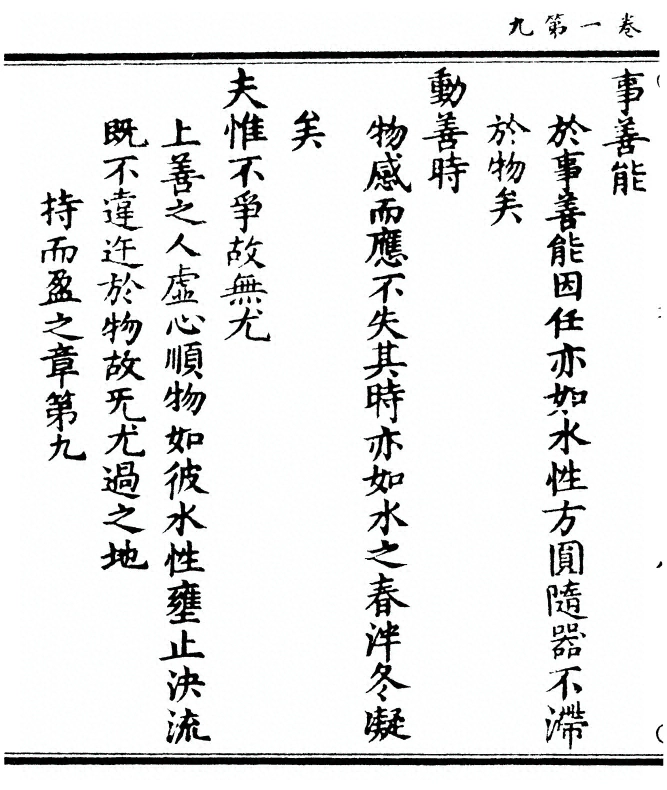 卷一第九
事善能
於事善能因任亦如水性方圓隨器不滯
於物矣
動善時
物感而應不失其時亦如水之春泮冬凝
矣
夫惟不爭故無尤
上善之人虛心順物如彼水性壅止決流
既不違迕於物故旡尤過之地
持而盈之章第九